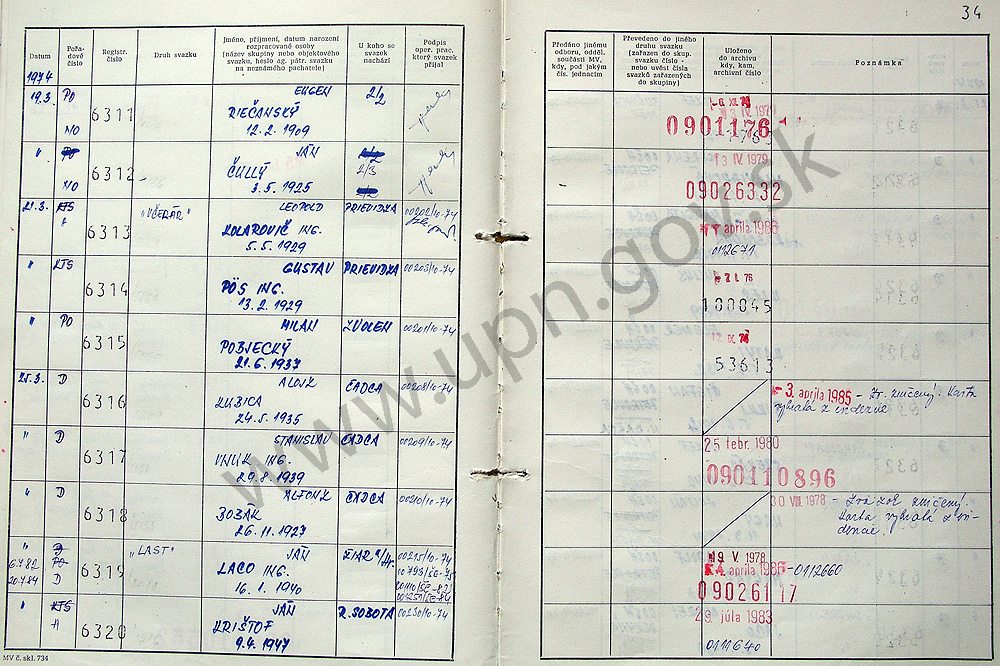 34
Datum
Pořadové číslo
Registr. číslo
Druh svazku
Jméno, příjmení, datum narození rozpracované osoby (název skupiny nebo objektového svazku, heslo ag. pátr. svazku na neznámého pachatele)
U koho se svazek nachází
Podpis oper. prac. který svazek přijal
Předáno jinému odboru, odděl. součásti MV, kdy, pod jakým čís. jednacím
Převedeno do jiného druhu svazku (zařazen do skup. svazku číslo - nebo uvést čísla svazků zařazených do skupiny)
Uloženo do archivu kdy, kam, archivní číslo
Poznámka
1974
19.3. PO EUGEN 2/2
6311 RIEČANSKÝ
NO 12.2.1909
0901176
" PO JÁN
6312 ČULLÝ 2/3
NO 3.5.1925
13 IV. 1979
09026332
21.3. KTS "VČELÁR" LEOPOLD PRIEVIDZA 00202/10-74
6313 KOLAROVIČ ING.
5.5.1929
apríla 1986
0112671
" KTS GUSTAV PRIEVIDZA 00203/10-74
6314 PÖS ING.
13.2.1929
100045
" PO MILAN ZVOLEN 00201/10-74
6315 POBJECKÝ
21.6.1937
53613
25.3. D ALOJZ ČADCA 00208/10-74
6316 KUBICA
24.5.1935
3. apríla 1985 - Zv. zničený. Karta
vybratá z evidencie
" D STANISLAV ČADCA 00209/10-74
6317 VNUK ING.
29.8.1939
25 febr. 1980
090110896
" D ALFONZ ČADCA 00210/10-74
6318 BOBÁK
26.11.1927
30. VIII. 1978 - Zväzok zničený.
Karta vybratá z evidencie.
" "LAST" JÁN ŽIAR n/H. 00215/10-74
6.7.82 PO 6319 LACO ING.
20.7.84 D 16.1.1940
19 V. 1978
apríla 1986 - 0112660
09026117
" KTS JÁN R. SOBOTA 00230/10-74
6320 KRIŠTOF
9.4.1947
29. júla 1983
0111640
MV č. skl. 734
www.upn.gov.sk